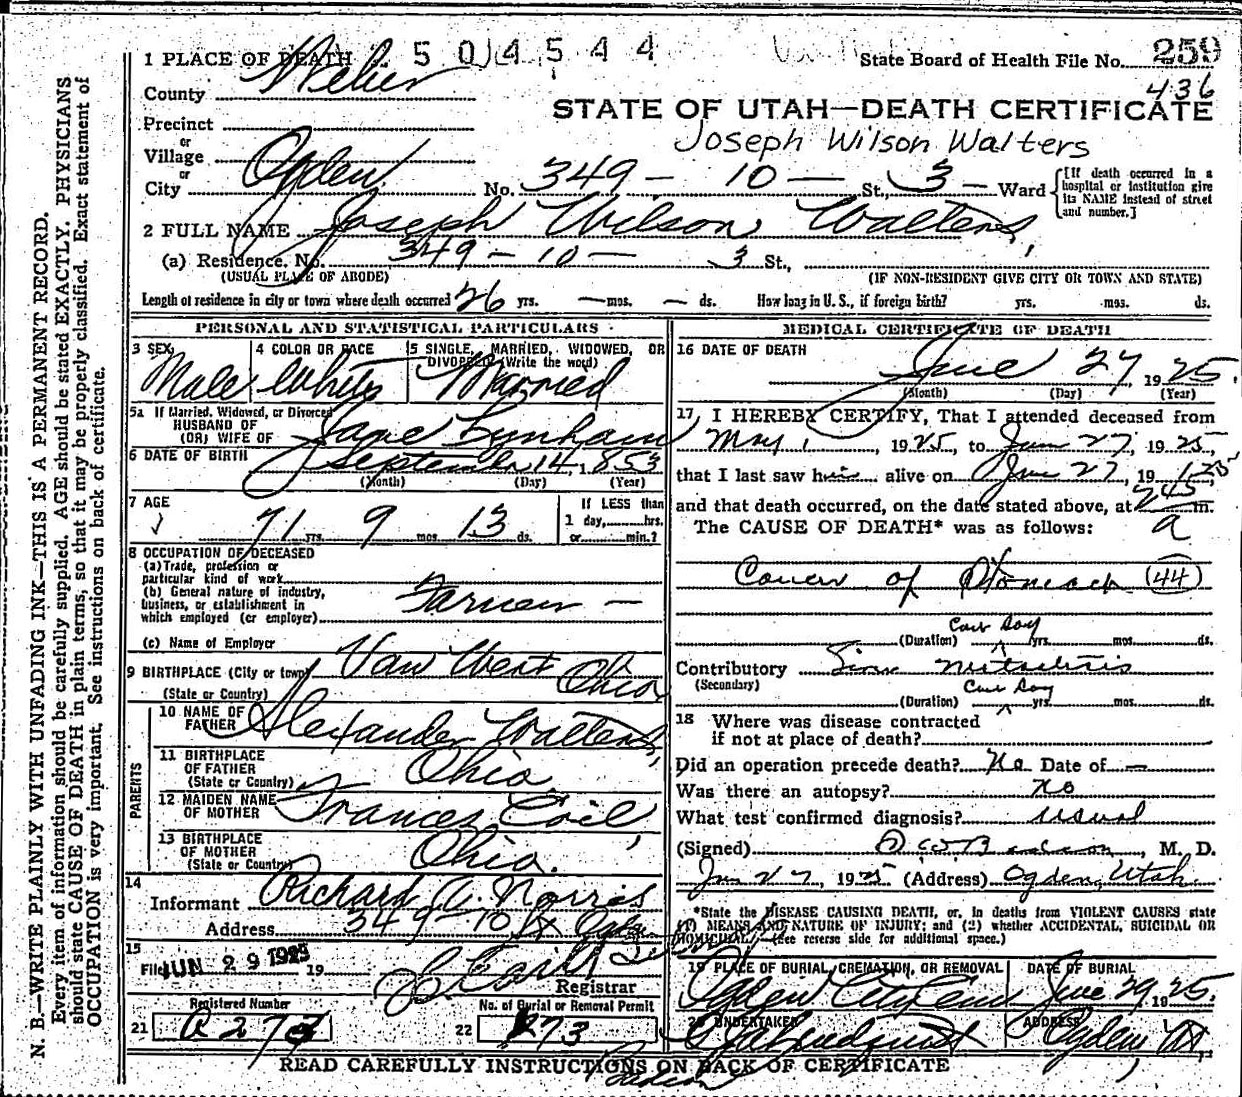 1 PLACE OF DEATH 504544 State Board of Health File No. 259
436
County Weber
STATE OF UTAH—DEATH CERTIFICATE
Precinct
Joseph Wilson Walters
or
Village
or
City Ogden No. 349 - 10 - St., 3 - Ward
[If death occurred in a hospital or institution give its NAME instead of street and number.]
2 FULL NAME Joseph Wilson Walters,
(a) Residence. No. 349 - 10 - 3 St.,
(USUAL PLACE OF ABODE) (IF NON-RESIDENT GIVE CITY OR TOWN AND STATE)
Length of residence in city or town where death occurred 26 yrs. — mos. — ds. How long in U. S., if foreign birth? yrs. mos. ds.
PERSONAL AND STATISTICAL PARTICULARS
3 SEX 4 COLOR OR RACE 5 SINGLE, MARRIED, WIDOWED, OR DIVORCED (Write the word)
Male White Married
5a If Married, Widowed, or Divorced
HUSBAND OF
(OR) WIFE OF Jane
6 DATE OF BIRTH September 14, 1853
(Month) (Day) (Year)
7 AGE 71 yrs. 9 mos. 13 ds.
If LESS than
1 day, hrs.
or min.?
8 OCCUPATION OF DECEASED
(a) Trade, profession or
particular kind of work
(b) General nature of industry,
business, or establishment in
which employed (or employer) Farmer —
(c) Name of Employer
9 BIRTHPLACE (City or town) Van Wert
(State or Country) Ohio
PARENTS
10 NAME OF
FATHER Alexander Walters,
11 BIRTHPLACE
OF FATHER
(State or Country) Ohio
12 MAIDEN NAME
OF MOTHER Frances Coil,
13 BIRTHPLACE
OF MOTHER
(State or Country) Ohio.
14
Informant Richard A. Norris
Address 349-10 St Ogden
15
Filed JUN 29 1925 19
Registrar
Registered Number No. of Burial or Removal Permit
21 22 273
MEDICAL CERTIFICATE OF DEATH
16 DATE OF DEATH
June 27, 1925.
(Month) (Day) (Year)
17, I HEREBY CERTIFY, That I attended deceased from
May 1, 1925, to June 27, 1925,
that I last saw him alive on June 27, 19
and that death occurred, on the date stated above, at 245 m.
a
The CAUSE OF DEATH* was as follows:
Cancer of Stomach (44)
(Duration) yrs. mos. ds.
Contributory
(Secondary)
(Duration) yrs. mos. ds.
18 Where was disease contracted
if not at place of death?
Did an operation precede death? No Date of —
Was there an autopsy? No
What test confirmed diagnosis? usual
(Signed) , M. D.
Jun 27, 1925 (Address) Ogden, Utah.
*State the DISEASE CAUSING DEATH, or, in deaths from VIOLENT CAUSES state
(1) MEANS AND NATURE OF INJURY; and (2) whether ACCIDENTAL, SUICIDAL OR
HOMICIDAL. (See reverse side for additional space.)
19 PLACE OF BURIAL, CREMATION, OR REMOVAL DATE OF BURIAL
Ogden City Cem June 29 1925.
20 UNDERTAKER ADDRESS
Ogden, Ut,
READ CAREFULLY INSTRUCTIONS ON BACK OF CERTIFICATE
N. B.—WRITE PLAINLY WITH UNFADING INK—THIS IS A PERMANENT RECORD.
Every item of information should be carefully supplied. AGE should be stated EXACTLY. PHYSICIANS
should state CAUSE OF DEATH in plain terms, so that it may be properly classified. Exact statement of
OCCUPATION is very important. See instructions on back of certificate.